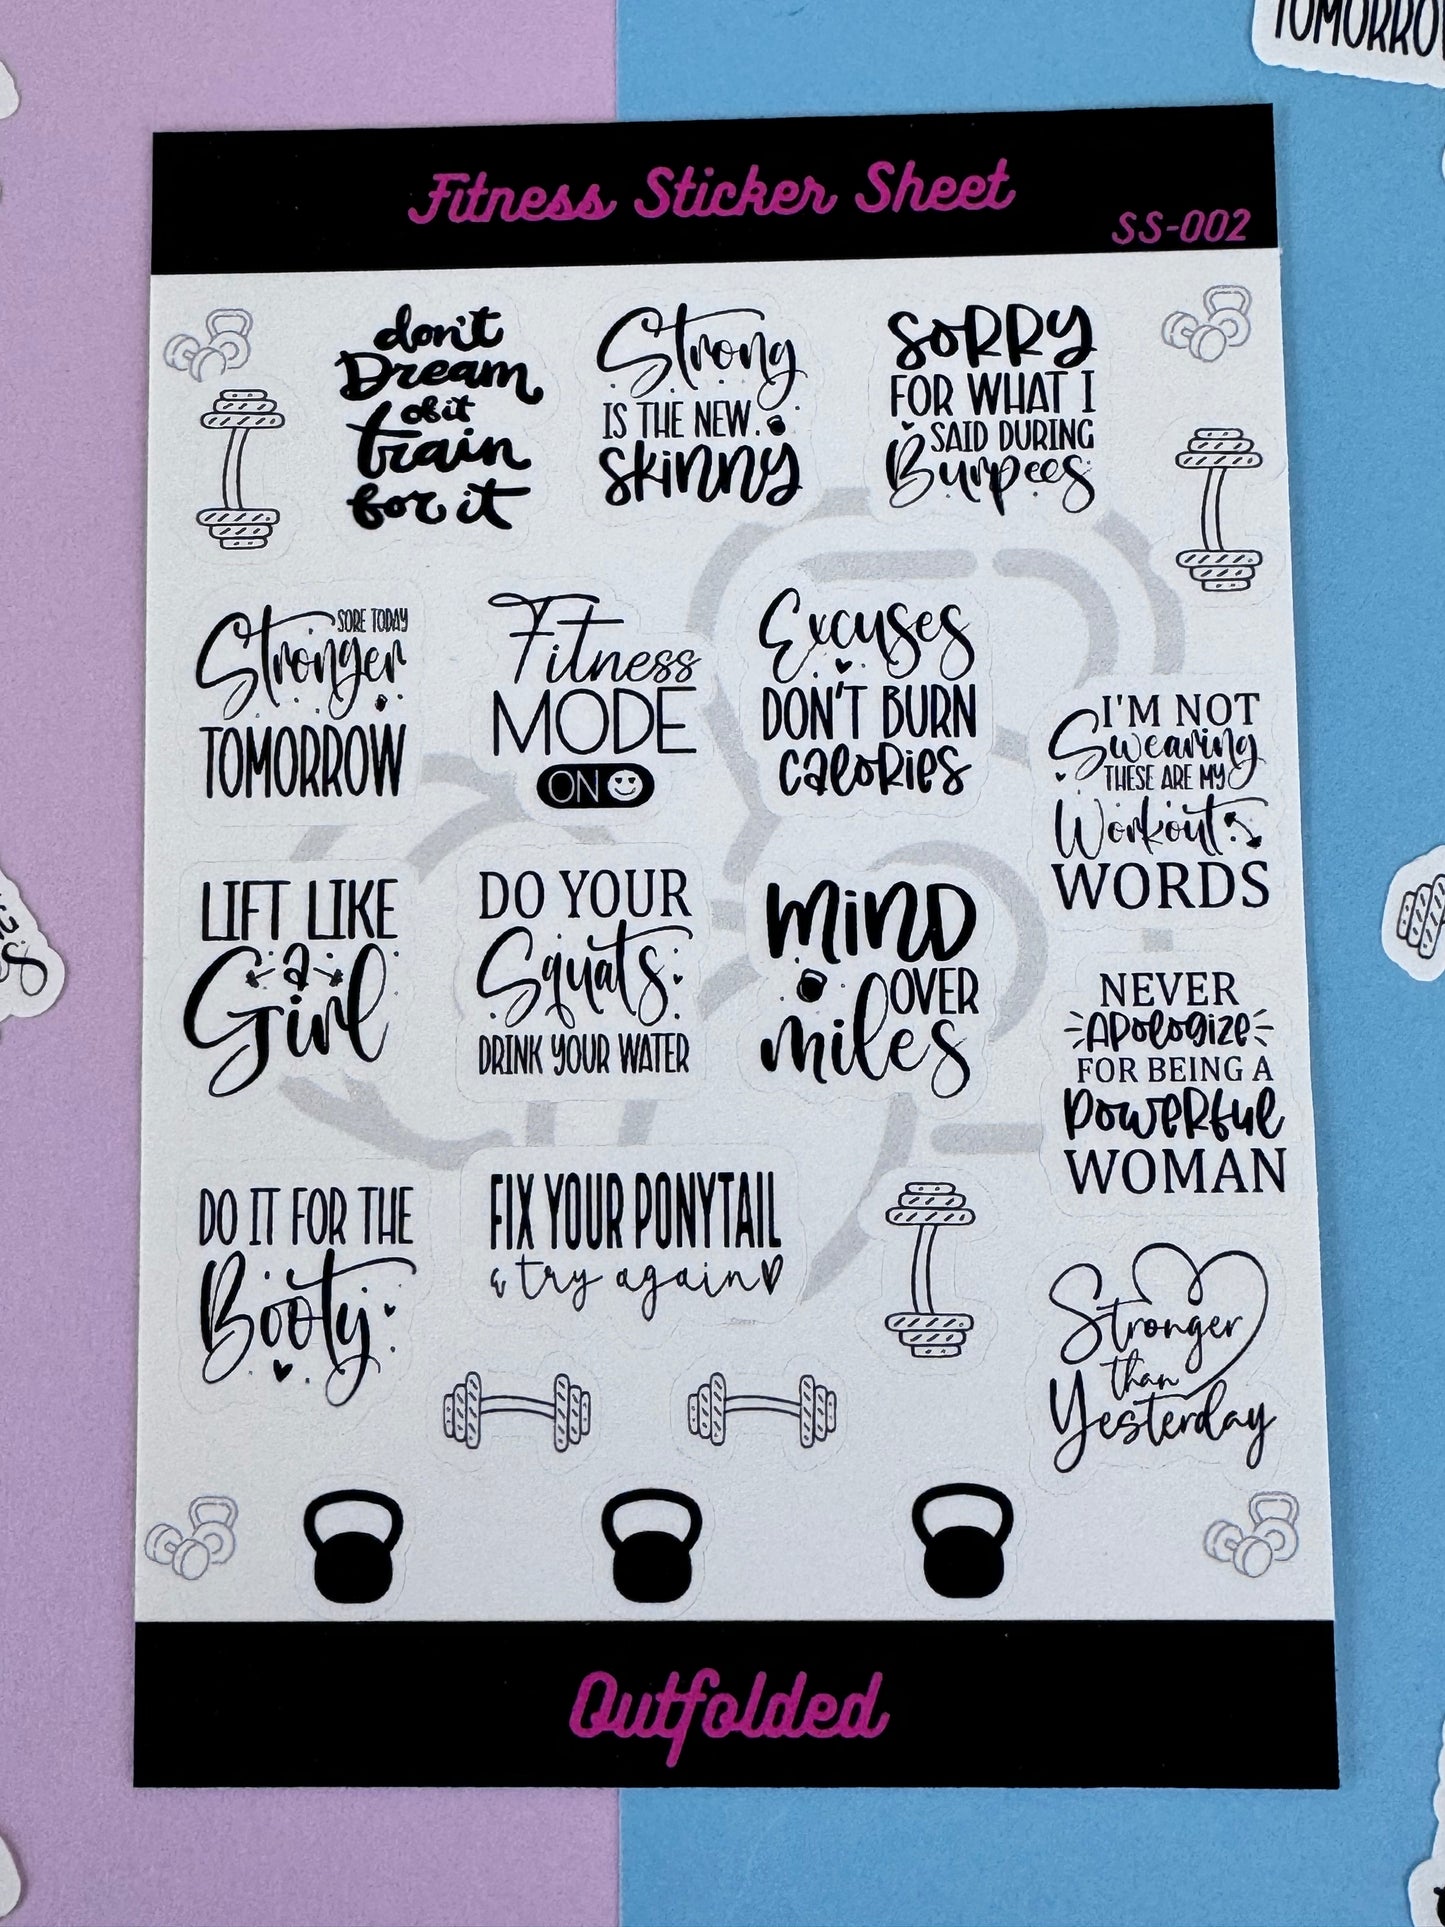 TOMORRO
Fitness Sticker Sheet
SS-002
don't
Dream
of it
train
for it
Strong
IS THE NEW
skinny
SORRY
FOR WHAT I
SAID DURING
Burpees
SORE TODAY
Stronger
TOMORROW
Fitness
MODE
ON
Excuses
DON'T BURN
calories
I'M NOT
Swearing
THESE ARE MY
Workout
WORDS
LIFT LIKE
a
Girl
DO YOUR
Squats
DRINK YOUR WATER
MIND
OVER
miles
NEVER
Apologize
FOR BEING A
powerful
WOMAN
DO IT FOR THE
Booty
FIX YOUR PONYTAIL
& try again
Stronger
than
Yesterday
Outfolded